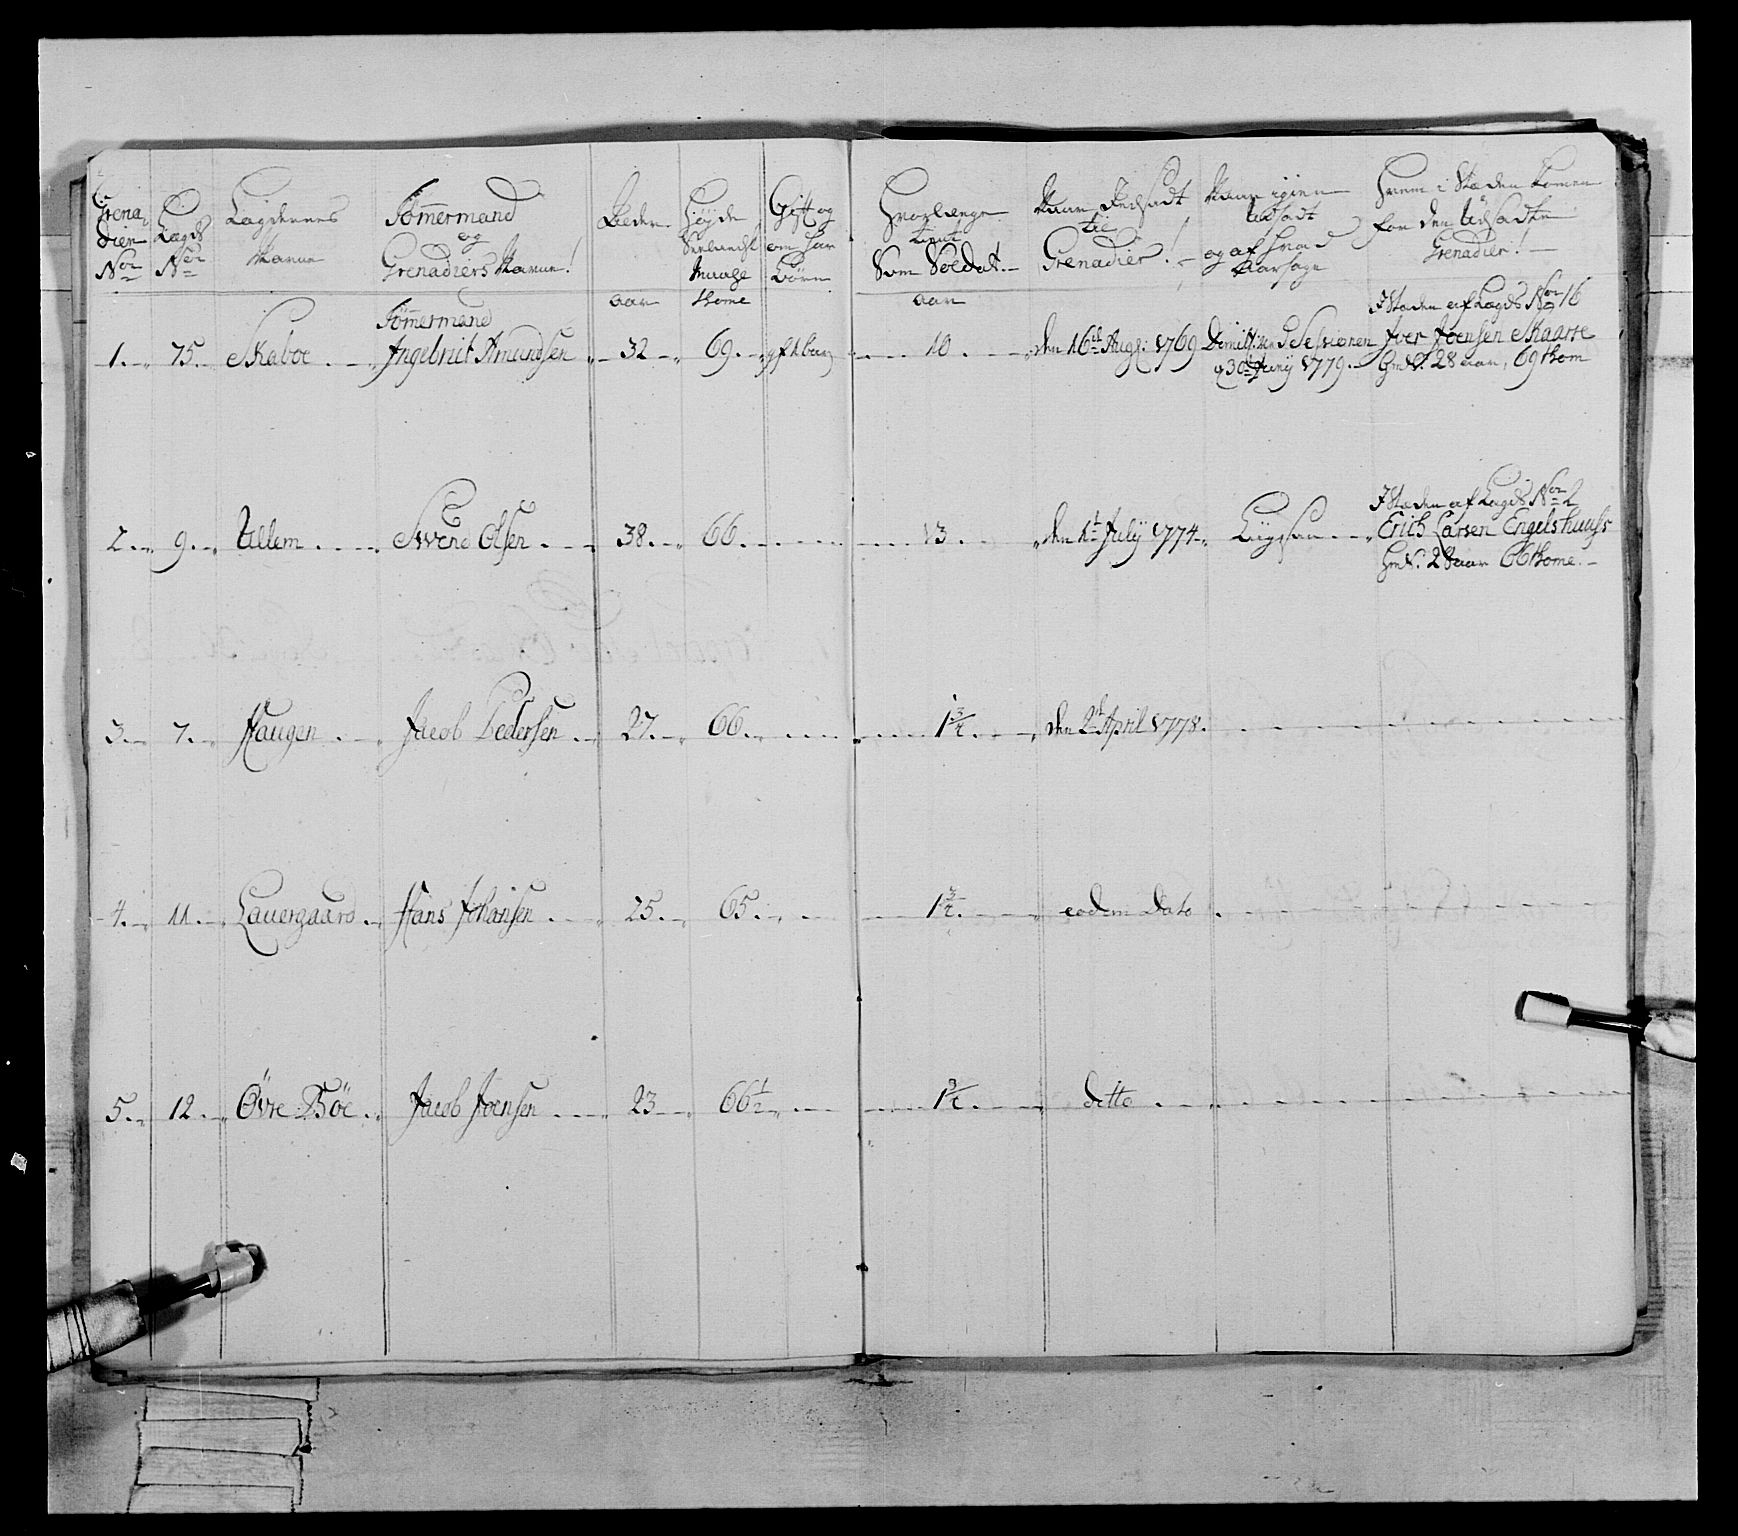 Grena
dier
No
Legds
No
Legdernes
Navne
Tömmermand
og
Grenadiers Navne!
Alder
Höyde
Maale
Gift og
om har
Börn
Hvorlænge
tient
Som Soldat.
Naar Indsadt
til
Grenadier!
Naar igien
udsadt
og af hvad
Aarsage
Hvem i Stæden komen
for den Udsadte
Grenadier!
aar
tome
aar
Tömmermand
1. 75. Skaboe Ingebrict Amundsen 32 69. gift 1 barn 10. den 16de Augs: 1769 Dimitt: ved Sessionen
d 30te Junij 1779.
I Stæden af Legds No 16
Iver Joensen Skaarse
Gml: 28 aar, 69 tom
2. 9. Ullem Svend Olsen 38. 66. 13. den 1te Julij 1774
I Stæden af Legds No 2
Erich Larsen Engelshuus
Gml: 28 aar 66 tome.
3. 7. Haugen Jacob Pedersen 27. 66. 1 3/4. den 2de April 1778.
4. 11. Lauergaard Hans Johansen 25. 65. 1 3/4. eodem Dato
5. 12. Övre Böe Jacob Joensen 23 66 1/2 1 3/4. ditto